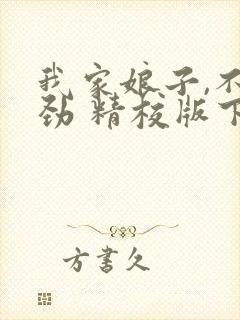 我家娘子,不
劲 精校版下
方書久